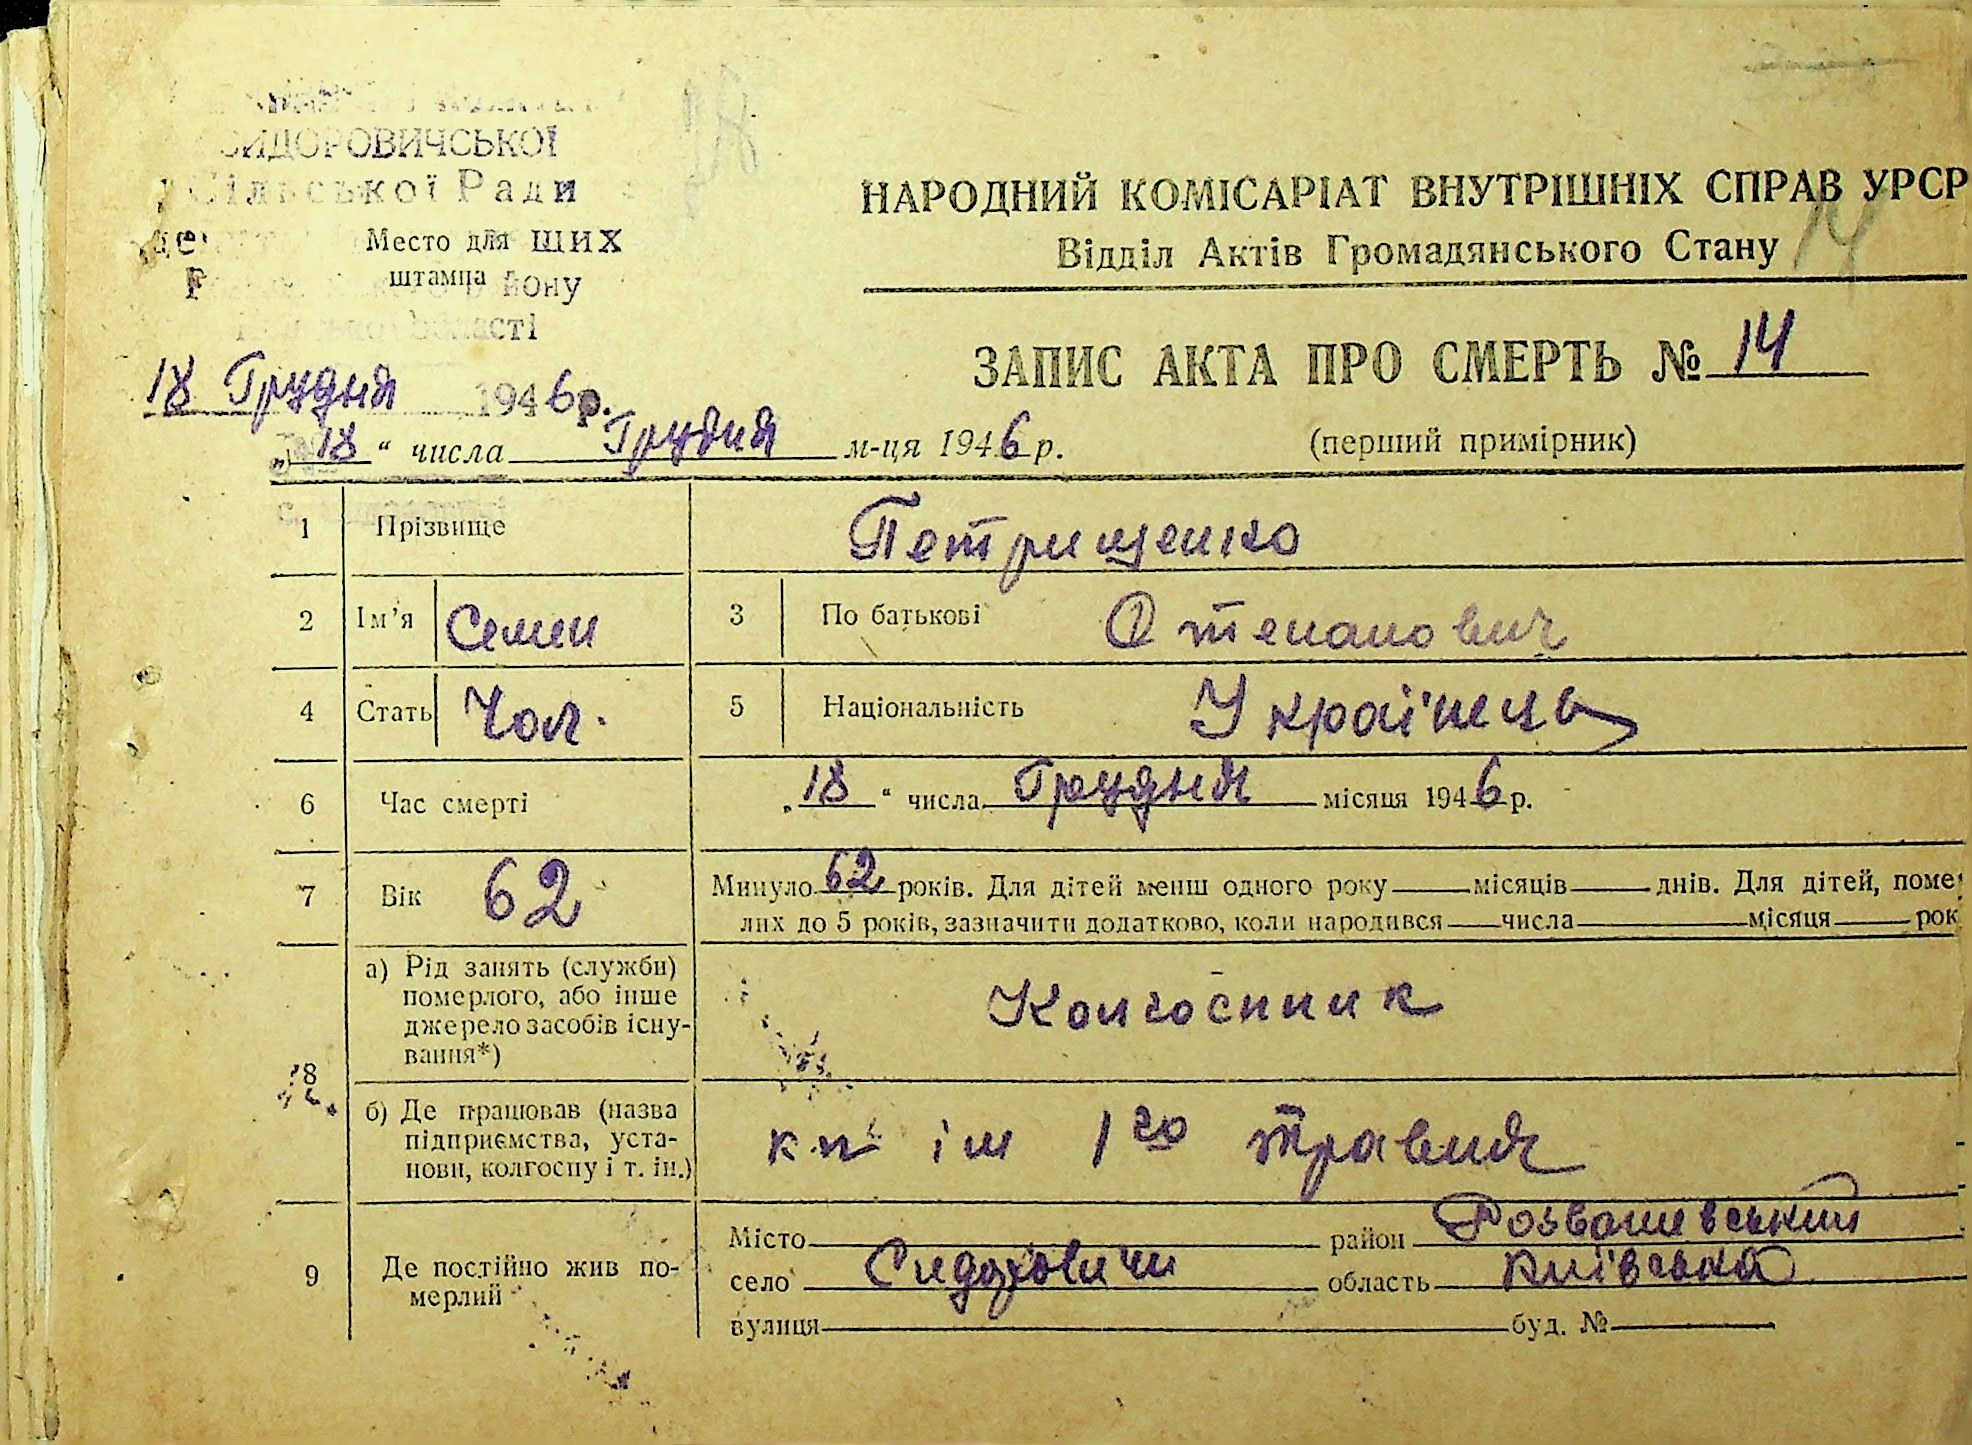 СИДОРОВИЧСЬКОЇ
Сільської Ради
Место для ших
штампа йону
області
18 Грудня 1946 р.
НАРОДНИЙ КОМІСАРІАТ ВНУТРІШНІХ СПРАВ УРСР
14
Відділ Актів Громадянського Стану
ЗАПИС АКТА ПРО СМЕРТЬ № 14
„18“ числа Грудня м-ця 1946 р.
(перший примірник)
1 Прізвище Петрищенко
2 Ім’я Семен 3 По батькові Степанович
4 Стать Чол. 5 Національність Українець
6 Час смерті „18“ числа Грудня місяця 1946 р.
7 Вік 62 Минуло 62 років. Для дітей менш одного року місяців днів. Для дітей, поме
лих до 5 років, зазначити додатково, коли народився числа місяця рок
8 а) Рід занять (служби)
померлого, або інше
джерело засобів існу-
вання*)
Колгоспник
б) Де працював (назва
підприємства, уста-
нови, колгоспу і т. ін.)
ім 1го травня
9 Де постійно жив по-
мерлий
Місто район Розважевський
село Сидоровичи область Київська
вулиця буд. №